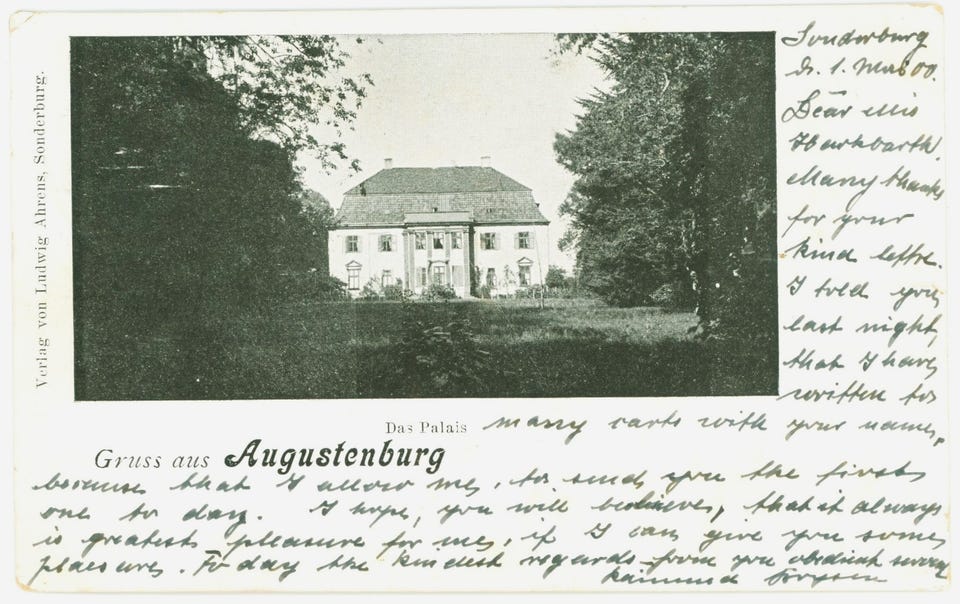 Verlag von Ludwig Ahrens, Sonderburg.
Sonderburg
d. 1. Mai 00.
Dear Miss
Harkbarth.
Many thanks
for your
kind lettre.
I told you
last night,
that I have
written to
Das Palais
many carts with your names,
Gruss aus Augustenburg
because that I allow me, to send you the firsts
one to day. I hope, you will believes, that it always
is greatest pleasure for me, if I can give you some
plaesures. To day the kindest regards from you obedient